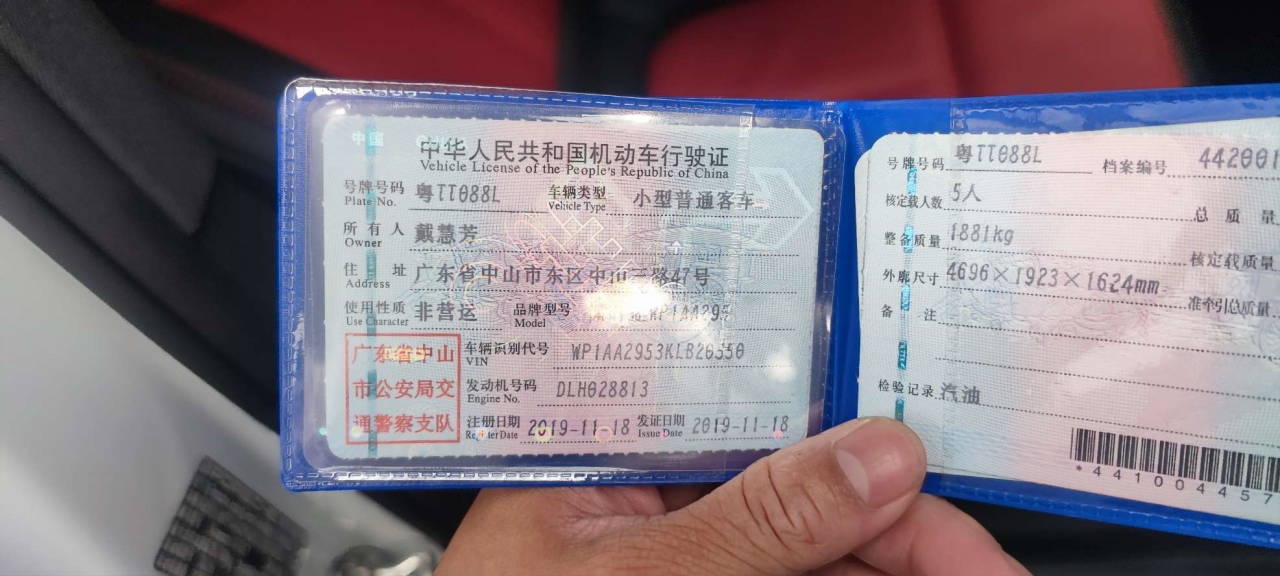 中国
中华人民共和国机动车行驶证
Vehicle License of the People's Republic of China
号牌号码 粤TT088L 车辆类型 小型普通客车
Plate No. Vehicle Type
所有人 戴慧芳
Owner
住址 广东省中山市东区中山三路47号
Address
使用性质 非营运 品牌型号 WP1AA295
Use Character Model
广东省中山
市公安局交
通警察支队
车辆识别代号 WP1AA2953KLB26550
VIN
发动机号码 DLH028813
Engine No.
注册日期 2019-11-18 发证日期 2019-11-18
Register Date Issue Date
号牌号码 粤TT088L 档案编号 442001
核定载人数 5人 总质量
整备质量 1881kg 核定载质量
外廓尺寸 4696×1923×1624mm 准牵引总质量
备注
检验记录 汽油
*441004457